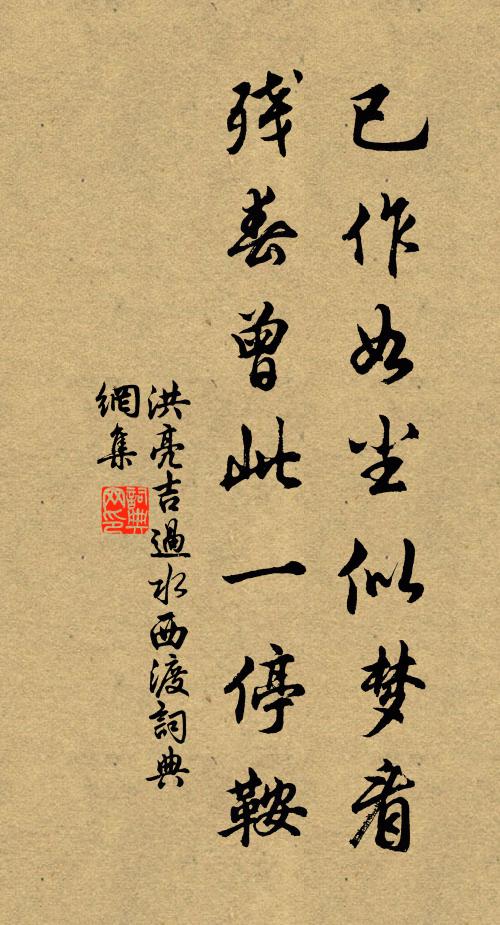 已作如尘似梦看
残春曾此一停鞍
洪亮吉過水西渡詞典
網集
詞典
网印